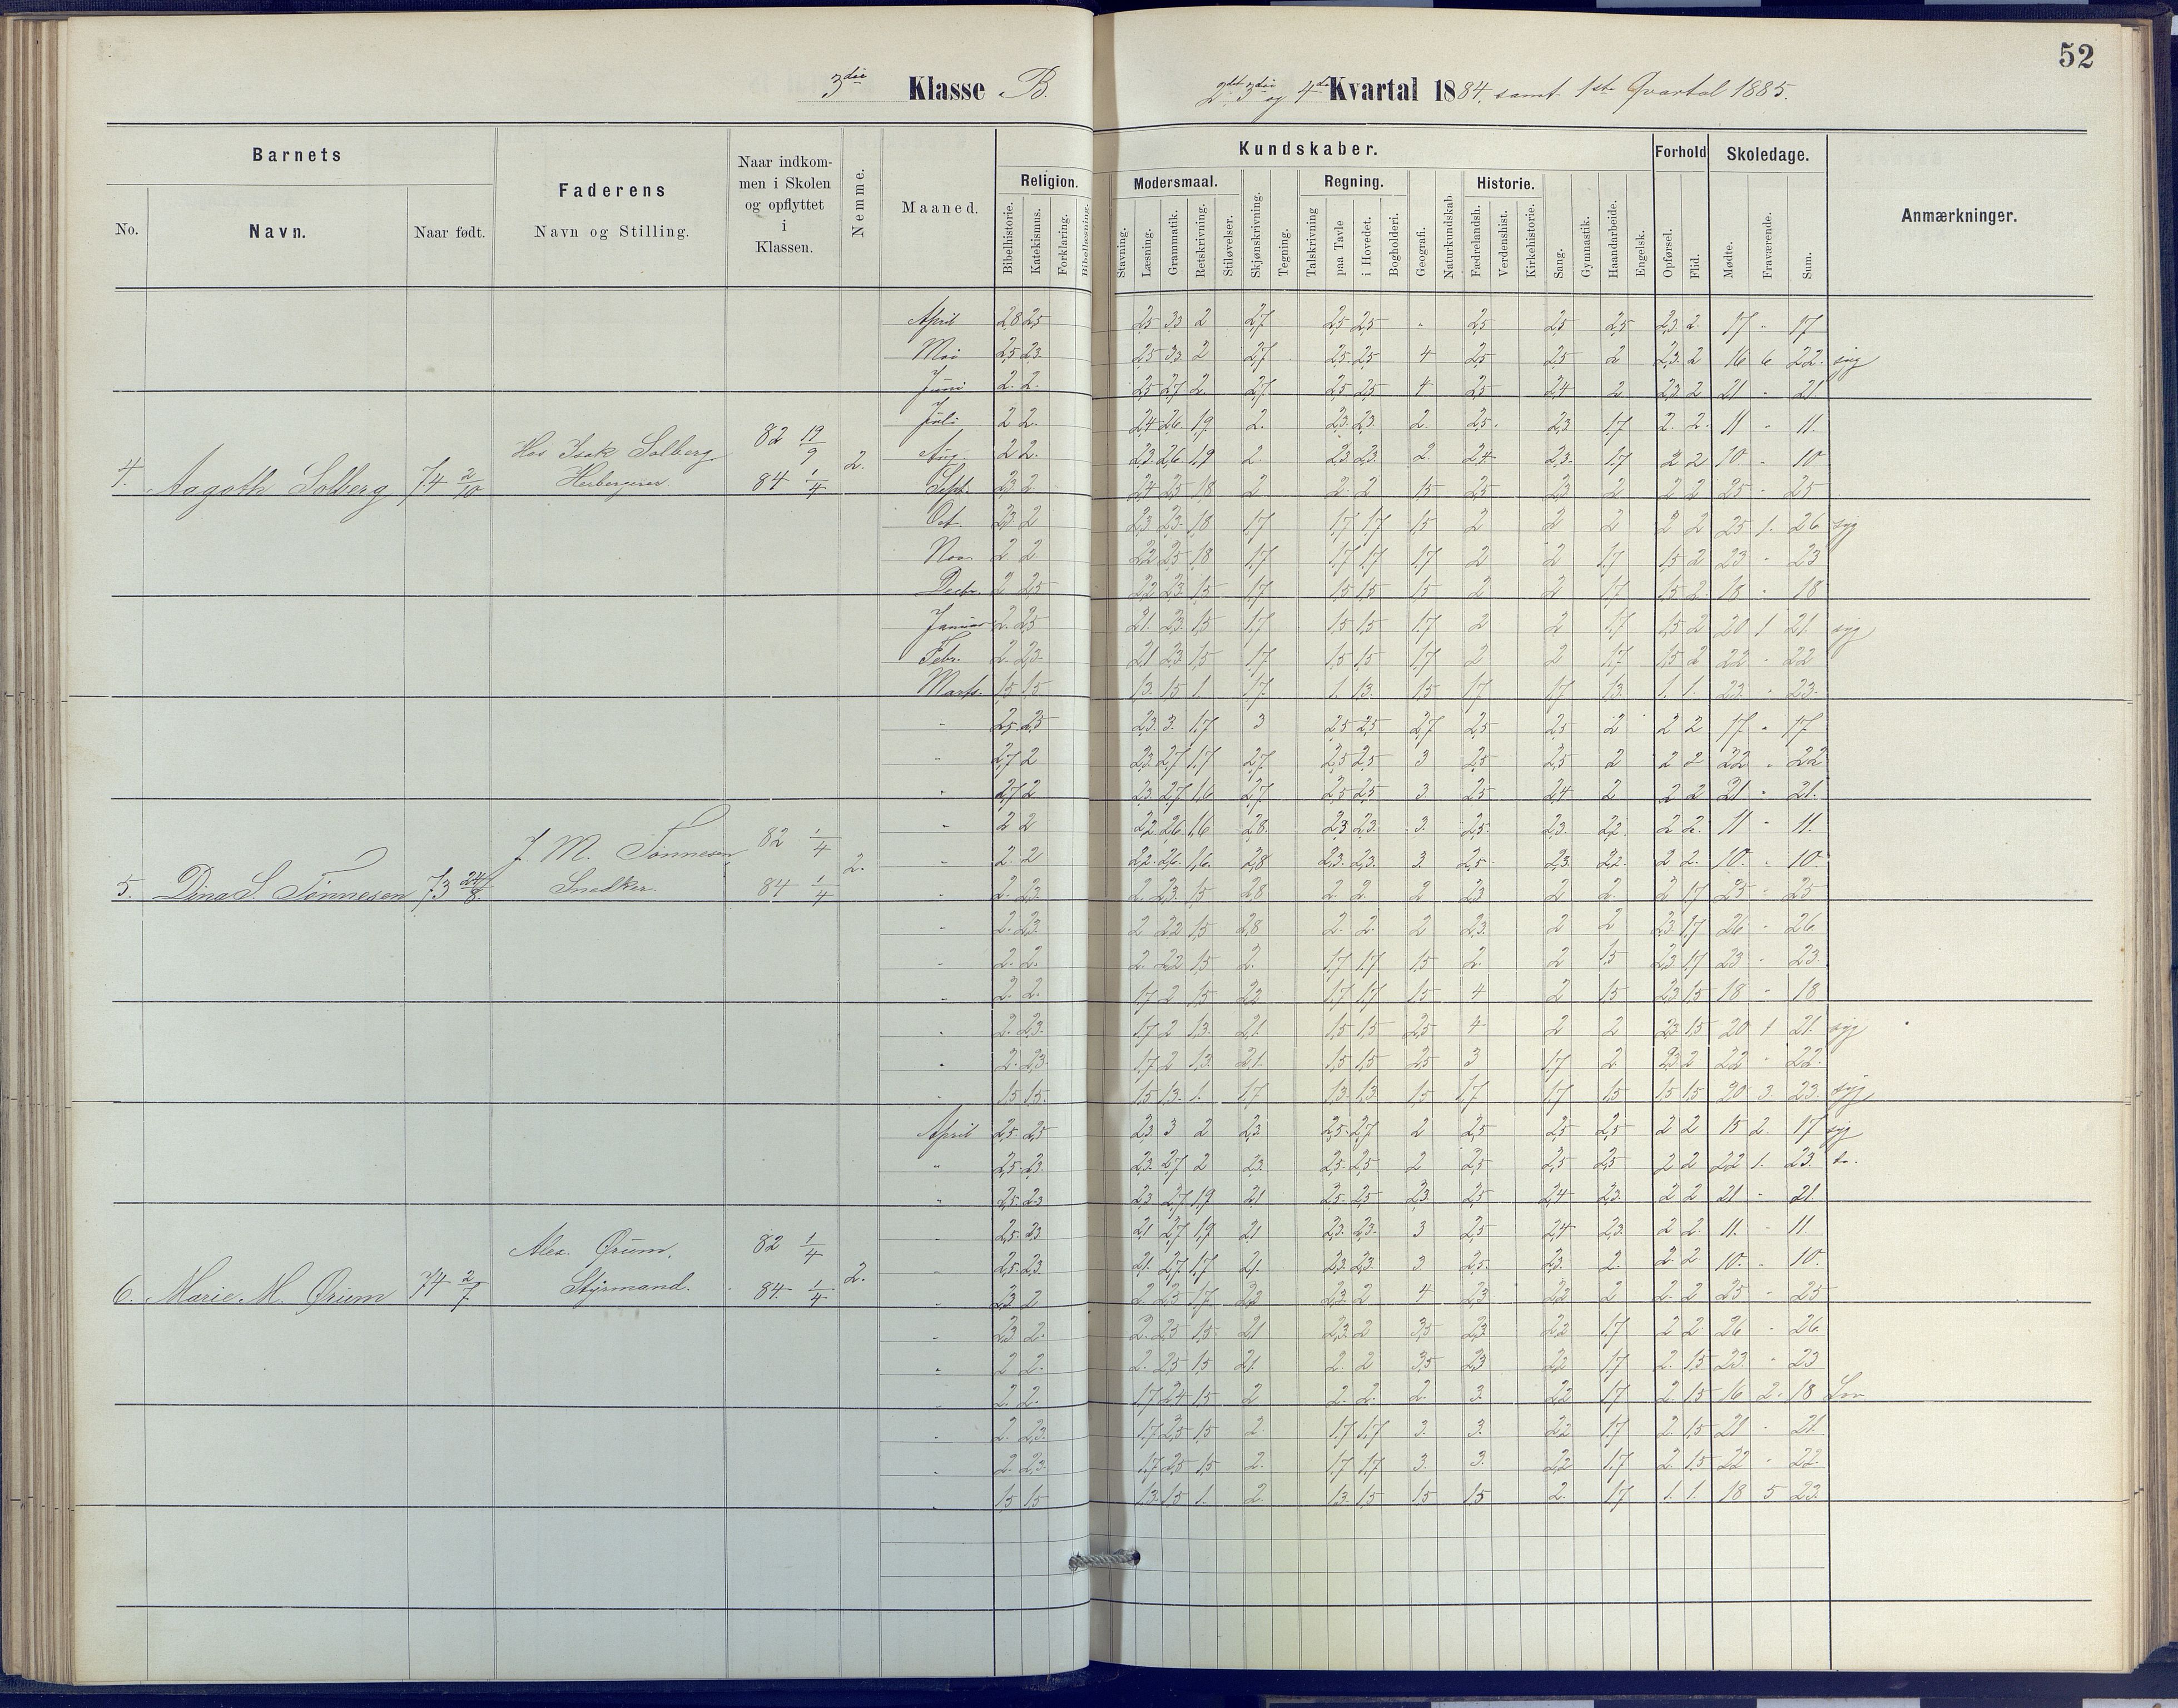 52
3die Klasse B.
2det 3die og 4de Kvartal 1884, samt 1ste Qvartal 1885.
Barnets
No.
Navn.
Naar født.
Faderens
Navn og Stilling.
Naar indkom-
men i Skolen
og opflyttet
i
Klassen.
Nemme.
Maaned.
Kundskaber.
Religion.
Bibelhistorie.
Katekismus.
Forklaring.
Bibellæsning.
Modersmaal.
Stavning.
Læsning.
Grammatik.
Retskrivning.
Stiløvelser.
Skjønskrivning.
Tegning.
Regning.
Talskrivning
paa Tavle
i Hovedet.
Bogholderi.
Geografi.
Naturkundskab
Historie.
Fædrelandsh.
Verdenshist.
Kirkehistorie.
Sang.
Gymnastik.
Haandarbeide.
Engelsk.
Forhold
Opførsel.
Flid.
Skoledage.
Mødte.
Fraværende.
Sum.
Anmærkninger.
4. Aagoth Solberg 74 2/10
Hos Isak Solberg
Herbergerer.
82 19/9
84 1/4
2.
April 2,8 2,5 2,5 3,3 2 2,7 2,5 2,5 - 2,5 2,5 2,5 2,3 2 17 - 17
Mai 2,5 2,3 2,5 3,3 2 2,7 2,5 2,5 4 2,5 2,5 2 2,3 2 16 6 22 syg
Juni 2 2 2,5 2,7 2 2,7 2,5 2,5 4 2,5 2,4 2 2,3 2 21 - 21
Juli 2 2 2,4 2,6 1,9 2 2,3 2,3 2 2,5 2,3 1,7 2 2 11 - 11
Aug. 2 2 2,3 2,6 1,9 2 2,3 2,3 2 2,4 2,3 1,7 2 2 10 - 10
Sept. 2,3 2 2,4 2,5 1,8 2 2 2 1,5 2,5 2,3 2 2 2 25 - 25
Oct. 2,3 2 2,3 2,3 1,8 1,7 1,7 1,7 1,5 2 2 2 2 2 25 1 26 syg
Nov. 2 2 2,2 2,5 1,8 1,7 1,7 1,7 1,7 2 2 1,7 1,5 2 23 - 23
Decbr. 2 2,5 2,2 2,3 1,5 1,7 1,5 1,5 1,5 2 2 1,7 1,5 2 18 - 18
Januar 2 2,5 2,1 2,3 1,5 1,7 1,5 1,5 1,7 2 2 1,7 1,5 2 20 1 21 syg
Febr. 2 2,3 2,1 2,3 1,5 1,7 1,5 1,5 1,7 2 2 1,7 1,5 2 22 - 22
Marts. 1,5 1,5 1,3 1,5 1 1,7 1 1,3 1,5 1,7 1,7 1,3 1 1 23 - 23
5. Dina S. Tönnesen 73 24/8
J. M. Tönnesen
Snedker.
82 1/4
84 1/4
2.
" 2,5 2,5 2,3 3 1,7 3 2,5 2,5 2,7 2,5 2,5 2 2 2 17 - 17
" 2,7 2 2,3 2,7 1,7 2,7 2,5 2,5 3 2,5 2,5 2 2 2 22 - 22
" 2,7 2 2,3 2,7 1,6 2,7 2,5 2,5 3 2,5 2,4 2 2 2 21 - 21
" 2 2 2,2 2,6 1,6 2,8 2,3 2,3 3 2,5 2,3 2,2 2 2 11 - 11
" 2 2 2,2 2,6 1,6 2,8 2,3 2,3 3 2,5 2,3 2,2 2 2 10 - 10
" 2 2,3 2 2,3 1,5 2,8 2 2 2 2,3 2 2 2 1,7 25 - 25
" 2 2,3 2 2,2 1,5 2,8 2 2 2 2,3 2 2 2,3 1,7 26 - 26
" 2 2 2 2,2 1,5 2 1,7 1,7 1,5 2 2 1,5 2,3 1,7 23 - 23
" 2 2 1,7 2 1,5 2,2 1,7 1,7 1,5 4 2 1,5 2,3 1,5 18 - 18
" 2 2,3 1,7 2 1,3 2,1 1,5 1,5 2,5 4 2 2 2,3 1,5 20 1 21 syg
" 2 2,3 1,7 2 1,3 2,1 1,5 1,5 2,5 3 1,7 2 2,3 2 22 - 22
" 1,5 1,5 1,5 1,3 1 1,7 1,3 1,3 1,5 1,7 1,7 1,5 1,5 1,5 20 3 23 syg
6. Marie M. Ørum 74 2/7
Alex. Ørum.
Styrmand.
82 1/4
84 1/4
2.
April 2,5 2,5 2,3 3 2 2,3 2,5 2,7 2 2,5 2,5 2,5 2 2 15 2 17 syg
" 2,5 2,3 2,3 2,7 2 2,3 2,5 2,5 2 2,5 2,5 2,5 2 2 22 1 23 do.
" 2,5 2,3 2,3 2,7 1,9 2,1 2,5 2,5 2,3 2,5 2,4 2,3 2 2 21 - 21
" 2,5 2,3 2,1 2,7 1,9 2,1 2,3 2,3 3 2,5 2,4 2,3 2 2 11 - 11
" 2,5 2,3 2,1 2,7 1,7 2,1 2,3 2,3 3 2,5 2,3 2 2 2 10 - 10
" 2,3 2 2 2,5 1,7 2,2 2,3 2 4 2,3 2,2 2 2 2 25 - 25
" 2,3 2 2 2,5 1,5 2,1 2,3 2 3,5 2,3 2,2 1,7 2 2 26 - 26
" 2 2 2 2,5 1,5 2,1 2 2 3,5 2,3 2,2 1,7 2 1,5 23 - 23
" 2 2 1,7 2,4 1,5 2 2 2 2 3 2,2 1,7 2 1,5 16 2 18 Lov
" 2 2,3 1,7 2,5 1,5 2 1,7 1,7 3 3 2,2 1,7 2 1,5 21 - 21
" 2 2,3 1,7 2,5 1,5 2 1,7 1,7 3 3 2,2 1,7 2 1,5 22 - 22
" 1,5 1,5 1,3 1,5 1 2 1,3 1,5 1,5 1,5 2 1,7 1 1 18 5 23